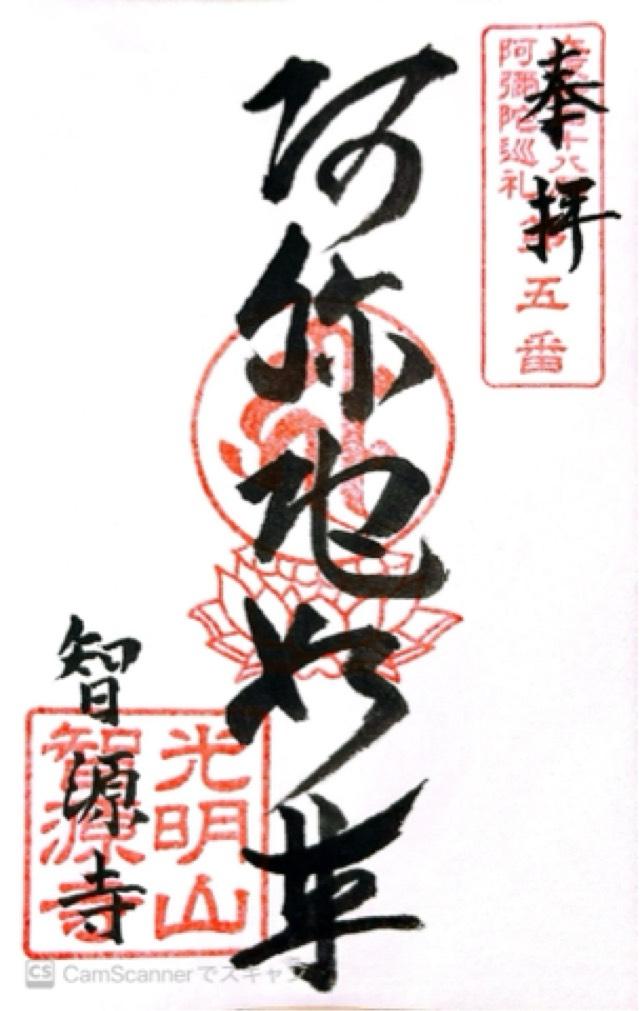 奉拝
十八
阿彌陀巡礼
第五番
阿弥陀如来
智源寺
光明山
智源寺
CS CamScannerでスキャン